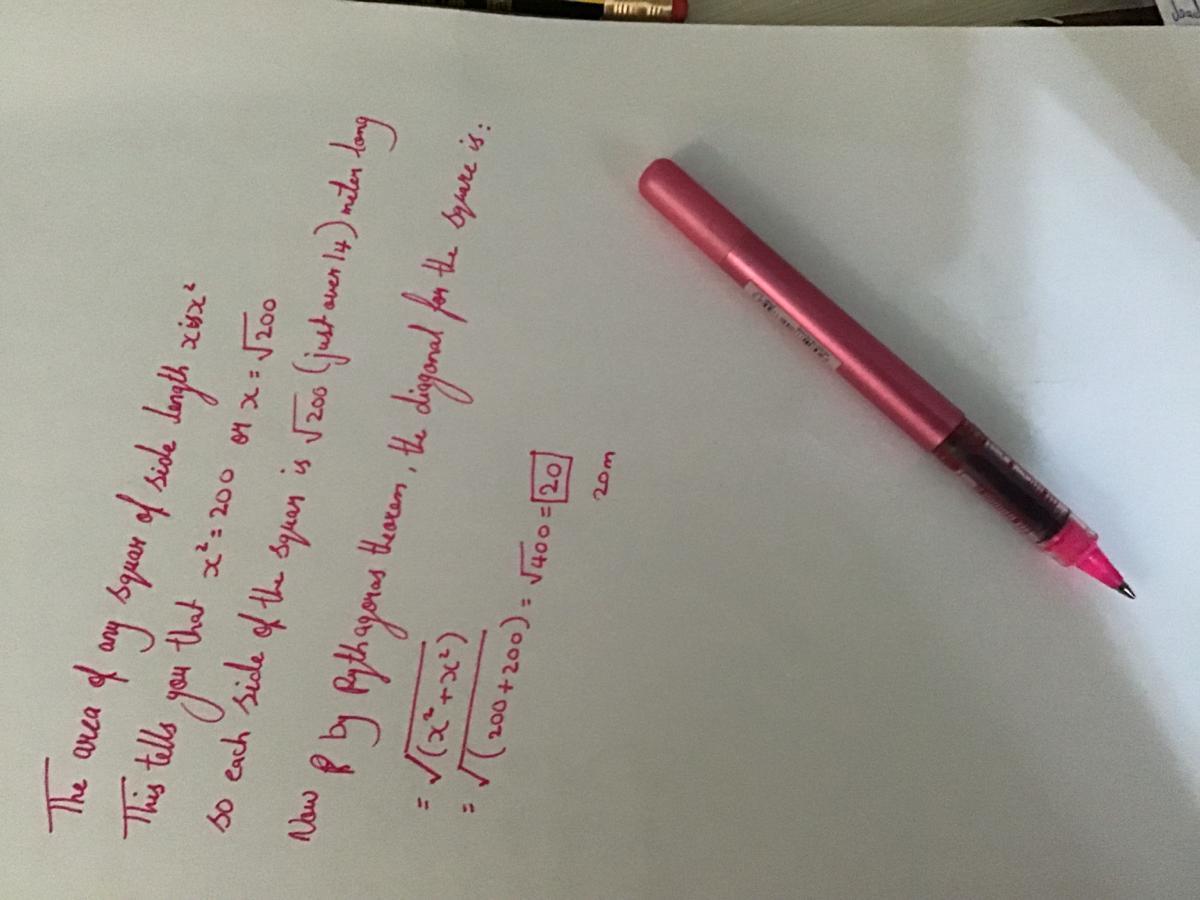 The area of any squar of side length x is x²
This tells you that x² = 200 or x = √200
so each side of the squar is √200 (just over 14) meter long
Now P by Pythagoras theoram, the diagonal for the square is:
= √(x² + x²)
= √(200 + 200) = √400 = 20
20m